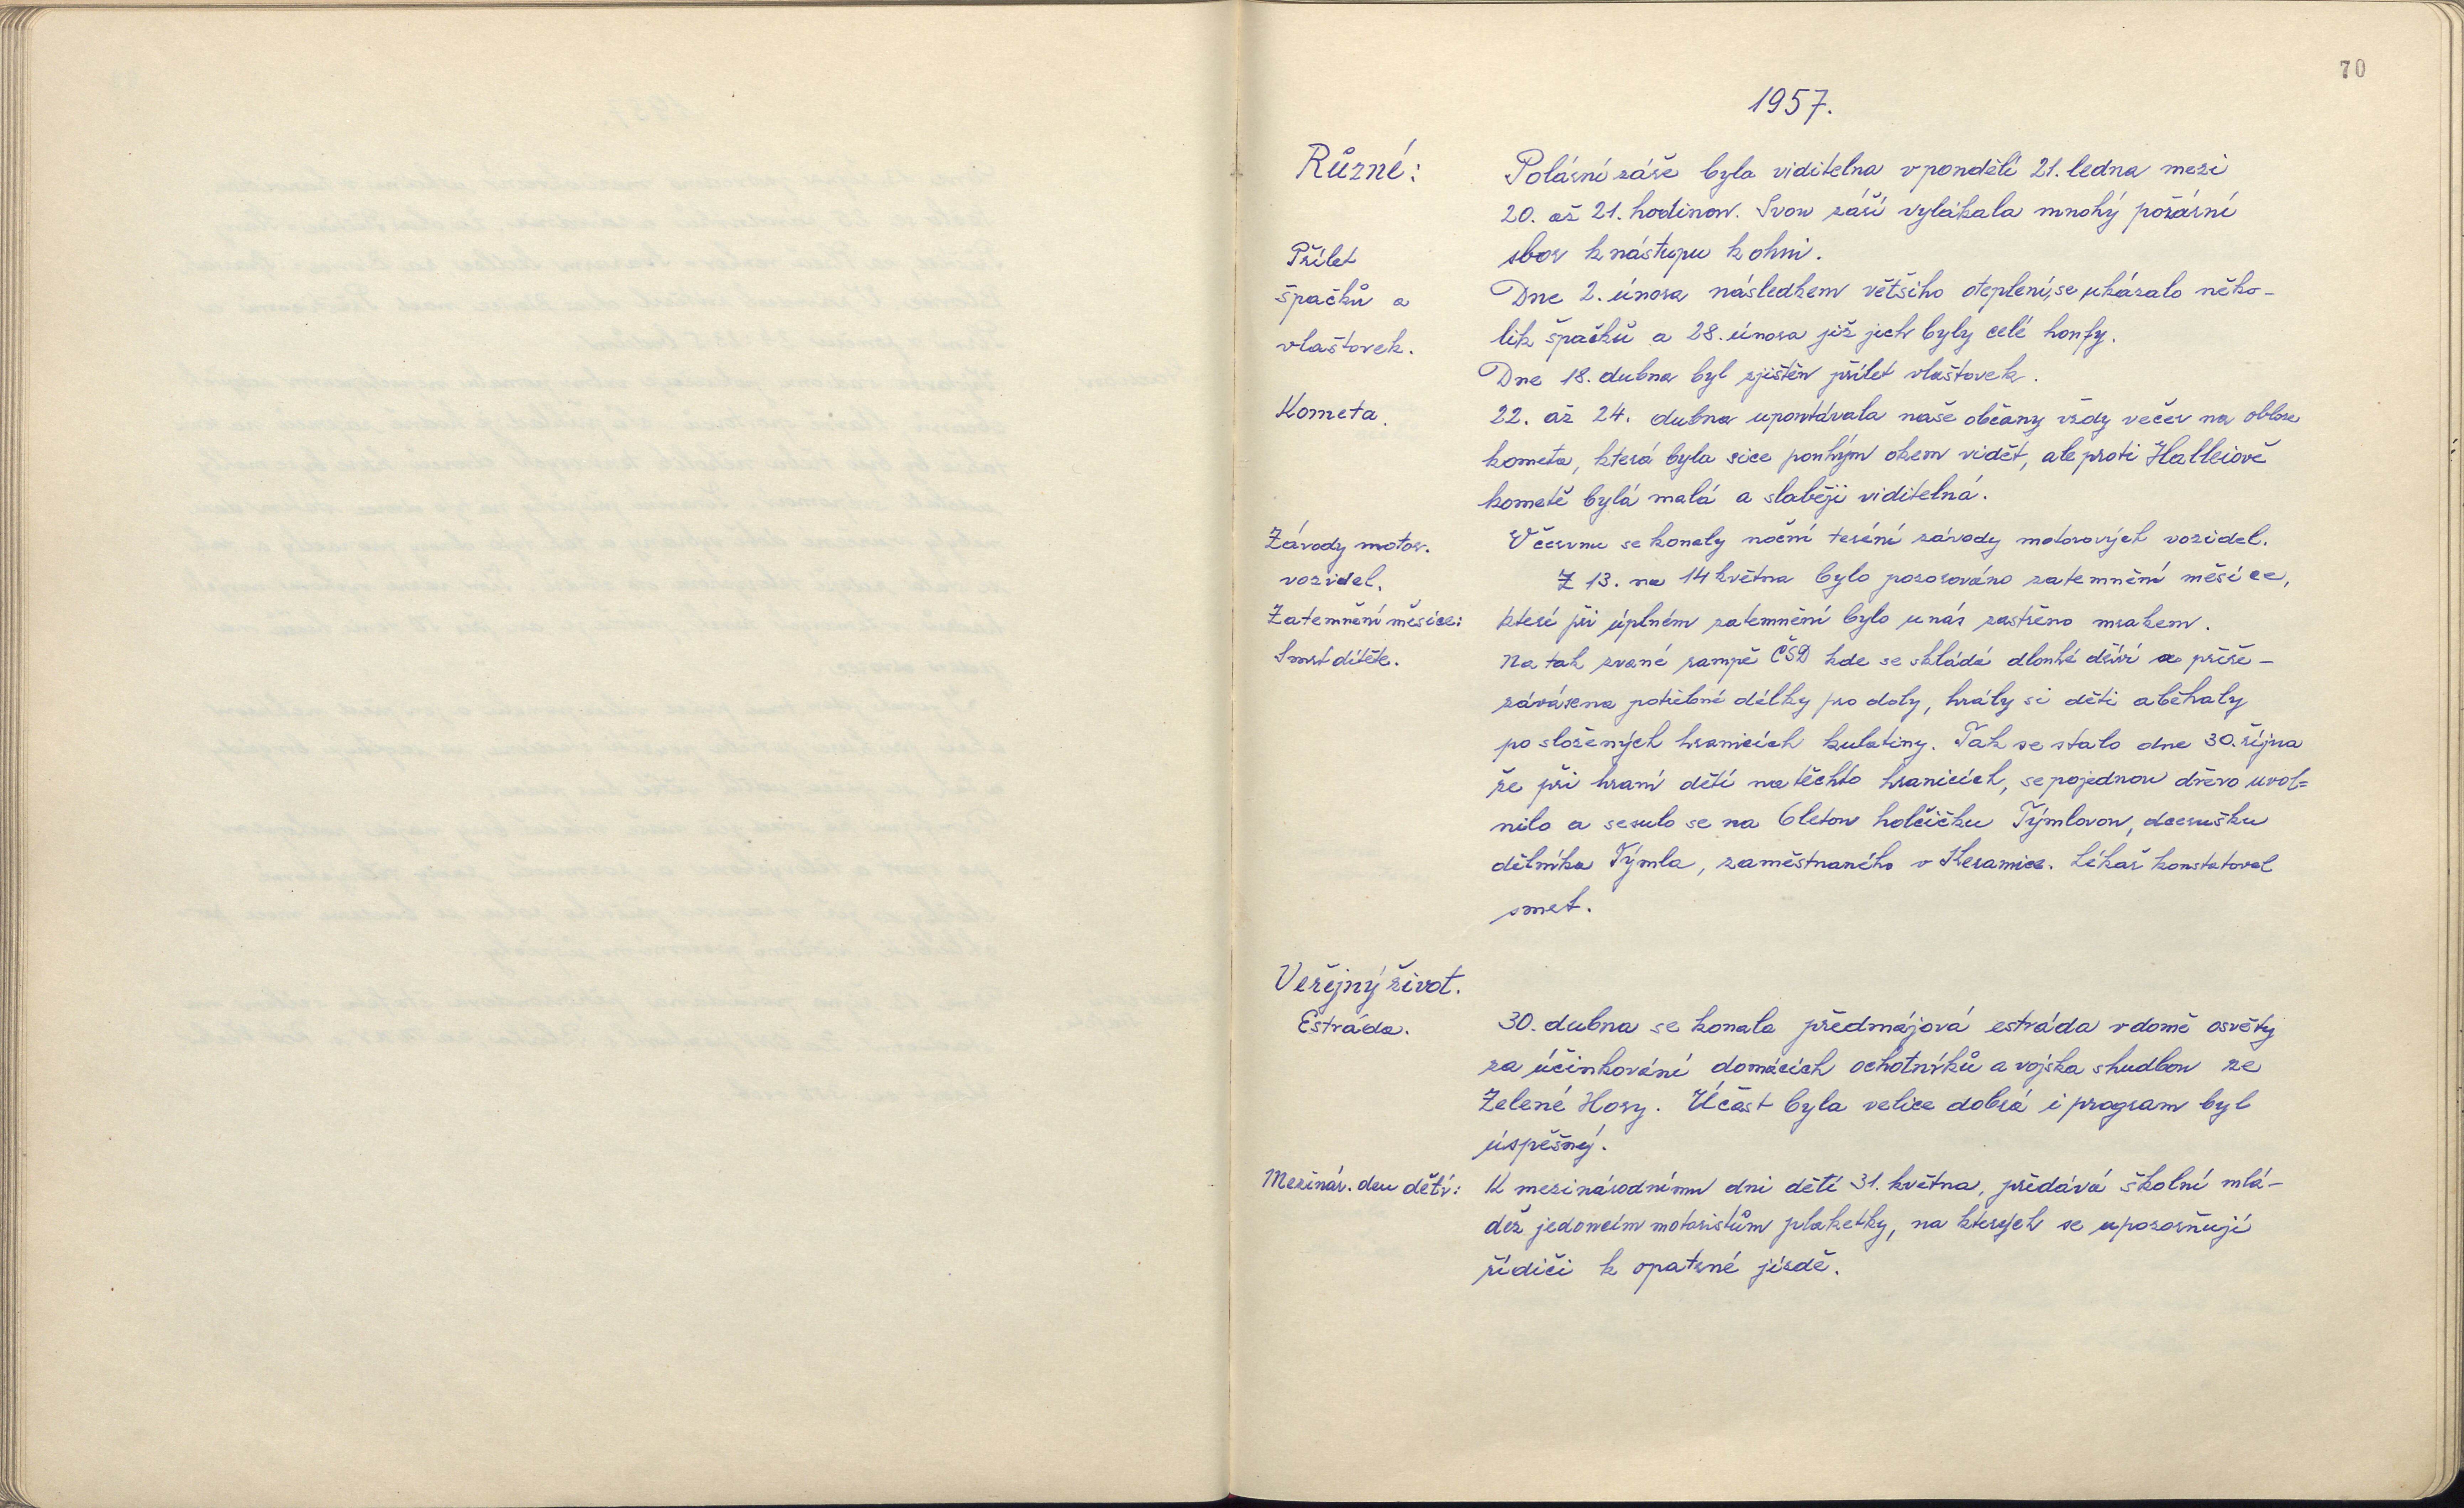 70
1957.
Různé:
Polární záře byla viditelna v pondělí 21. ledna mezi
20. až 21. hodinou. Svou září vylákala mnohý požární
sbor k nástupu k ohni.
Přílet
špačků a
vlaštovek.
Dne 2. února následkem většího oteplení, se ukázalo něko-
lik špačků a 28. února již jich byly celé houfy.
Dne 18. dubna byl zjištěn přílet vlaštovek.
Kometa.
22. až 24. dubna upoutávala naše občany vždy večer na obloze
kometa, která byla sice pouhým okem vidět, ale proti Halleiově
kometě bylá malá a slaběji viditelná.
Závody motor.
vozidel.
V červnu se konaly noční terení závody motorových vozidel.
Zatemnění měsíce:
Z 13. na 14 května bylo pozorováno zatemnění měsíce,
které při úplném zatemnění bylo u nás zastřeno mrakem.
Smrt dítěte.
Na tak zvané rampě ČSD kde se skládá dlouhé dříví a přiře-
závásena potřebné délky pro doly, hrály si děti a běhaly
po složených hranicích kulatiny. Tak se stalo dne 30. října
že při hraní dětí na těchto hranicích, se pojednou dřevo uvol=
nilo a sesulo se na 6letou holčičku Týmlovou, dcerušku
dělníka Týmla, zaměstnaného v Keramice. Lékař konstatoval
smrt.
Veřejný život.
Estráda.
30. dubna se konala předmájová estráda v domě osvěty
za účinkování domácích ochotníků a vojska s hudbou ze
Zelené Hory. Účast byla velice dobrá i program byl
úspěšný.
Mezinár. den dětí:
K mezinárodnímu dni dětí 31. května, předává školní mlá-
dež jedoucím motoristům plaketky, na kterých se upozorňují
řidiči k opatrné jízdě.